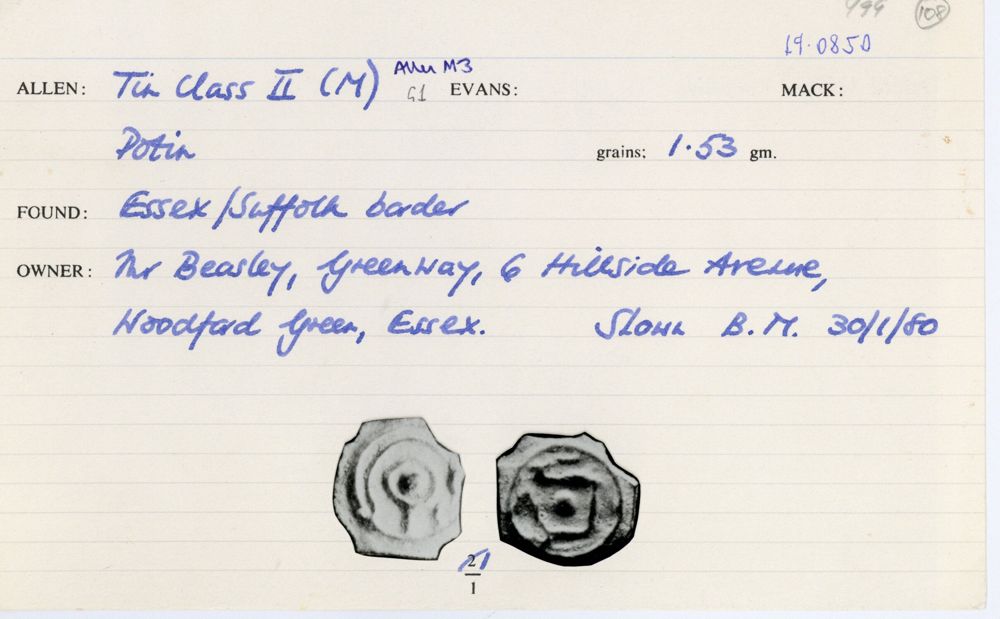 108
19.0850
ALLEN: Tin Class II (M) Allen M3 G1 EVANS: MACK:
Potin grains: 1.53 gm.
FOUND: Essex/Suffolk border
OWNER: Mr Beasley, Greenway, 6 Hillside Avenue,
Woodford Green, Essex. Shown B.M. 30/1/80
1